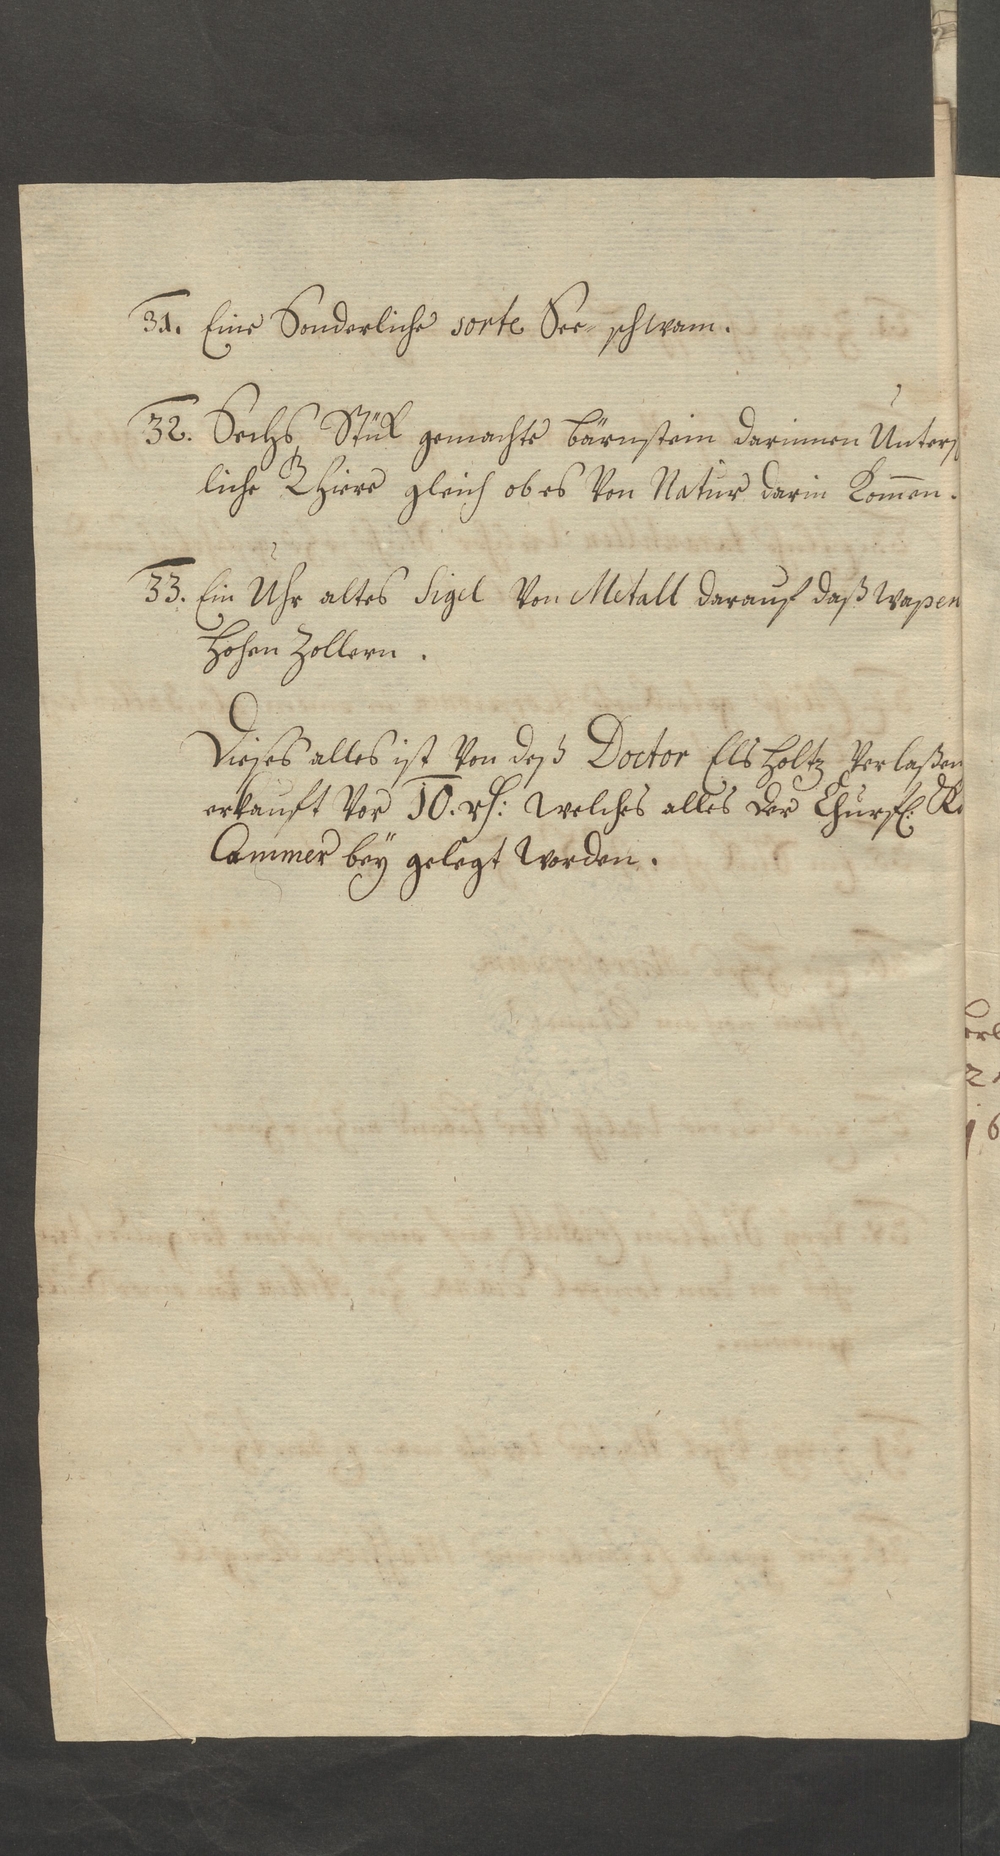 31. Eine Sonderliche sorte See-schwam.
32. Sechs Stük gemachte bärnstein darinnen Unters
liche Thiere gleich ob es Von Natur darin kom̄en.
33. Ein Uhr altes Sigel Von Metall darauf daß wapen
Hohen Zollern.
Dieses alles ist Von deß Doctor Elsholtz Verlaßen
erkauft Vor 10. rh: welches alles der Churfl: K
Cammer bey gelegt worden.